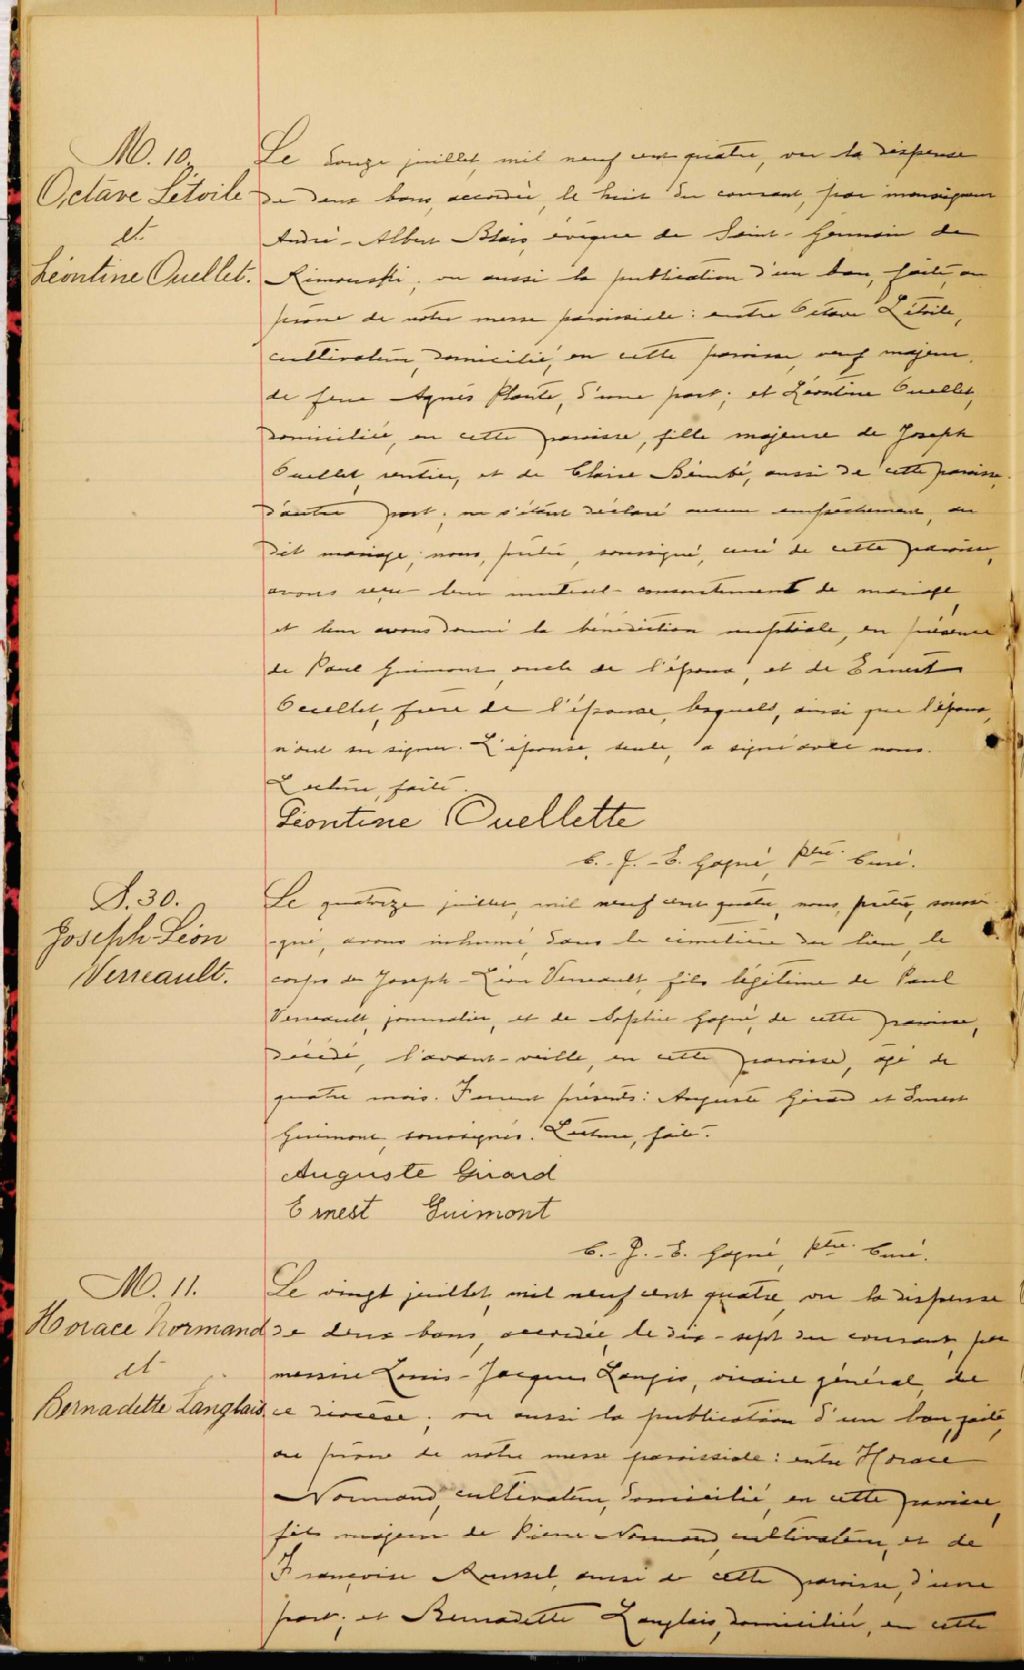 M. 10.
Octave Létoile
et
Léontine Ouellet.
Le douze juillet, mil neuf cent quatre, vu la dispense
de deux bans, accordée, le huit du courant, par monseigneur
André-Albert Blais, évêque de Saint-Germain de
Rimouski; vu aussi la publication d'un ban, faite, au
prône de notre messe paroissiale: entre Octave Létoile,
cultivateur, domicilié, en cette paroisse, veuf majeur,
de feue Agnès Plante, d'une part; et Léontine Ouellet,
domiciliée, en cette paroisse, fille majeure de Joseph
Ouellet, rentier, et de Claire Bérubé, aussi de cette paroisse,
d'autre part; ne s'étant déclaré aucun empêchement, au
dit mariage; nous, prêtre, soussigné, curé de cette paroisse,
avons reçu leur mutuel consentement de mariage,
et leur avons donné la bénédiction nuptiale, en présence
de Paul Guimont, oncle de l'époux, et de Ernest
Ouellet, frère de l'épouse, lesquels, ainsi que l'époux,
n'ont su signer. L'épouse, seule, a signé avec nous.
Lecture, faite.
Léontine Ouellette
C.-J.-E. Gagné, ptre. Curé.
S. 30.
Joseph-Léon
Verreault.
Le quatorze juillet, mil neuf cent quatre, nous, prêtre, soussi-
-gné, avons inhumé, dans le cimetière du lieu, le
corps de Joseph-Léon Verreault, fils légitime de Paul
Verreault, journalier, et de Sophie Gagné, de cette paroisse,
décédé, l'avant-veille, en cette paroisse, âgé de
quatre mois. Furent présents: Auguste Girard et Ernest
Guimont, soussignés. Lecture, faite.
Auguste Girard
Ernest Guimont
C.-J.-E. Gagné, ptre. Curé.
M. 11.
Horace Normand
et
Bernadette Langlais.
Le vingt juillet, mil neuf cent quatre, vu la dispense
de deux bans, accordée, le dix-sept du courant, par
messire Louis-Jacques Langis, vicaire général, de
ce diocèse; vu aussi la publication d'un ban, faite,
au prône de notre messe paroissiale: entre Horace
Normand, cultivateur, domicilié, en cette paroisse,
fils majeur de Pierre Normand, cultivateur, et de
Françoise Roussel, aussi de cette paroisse, d'une
part; et Bernadette Langlais, domiciliée, en cette